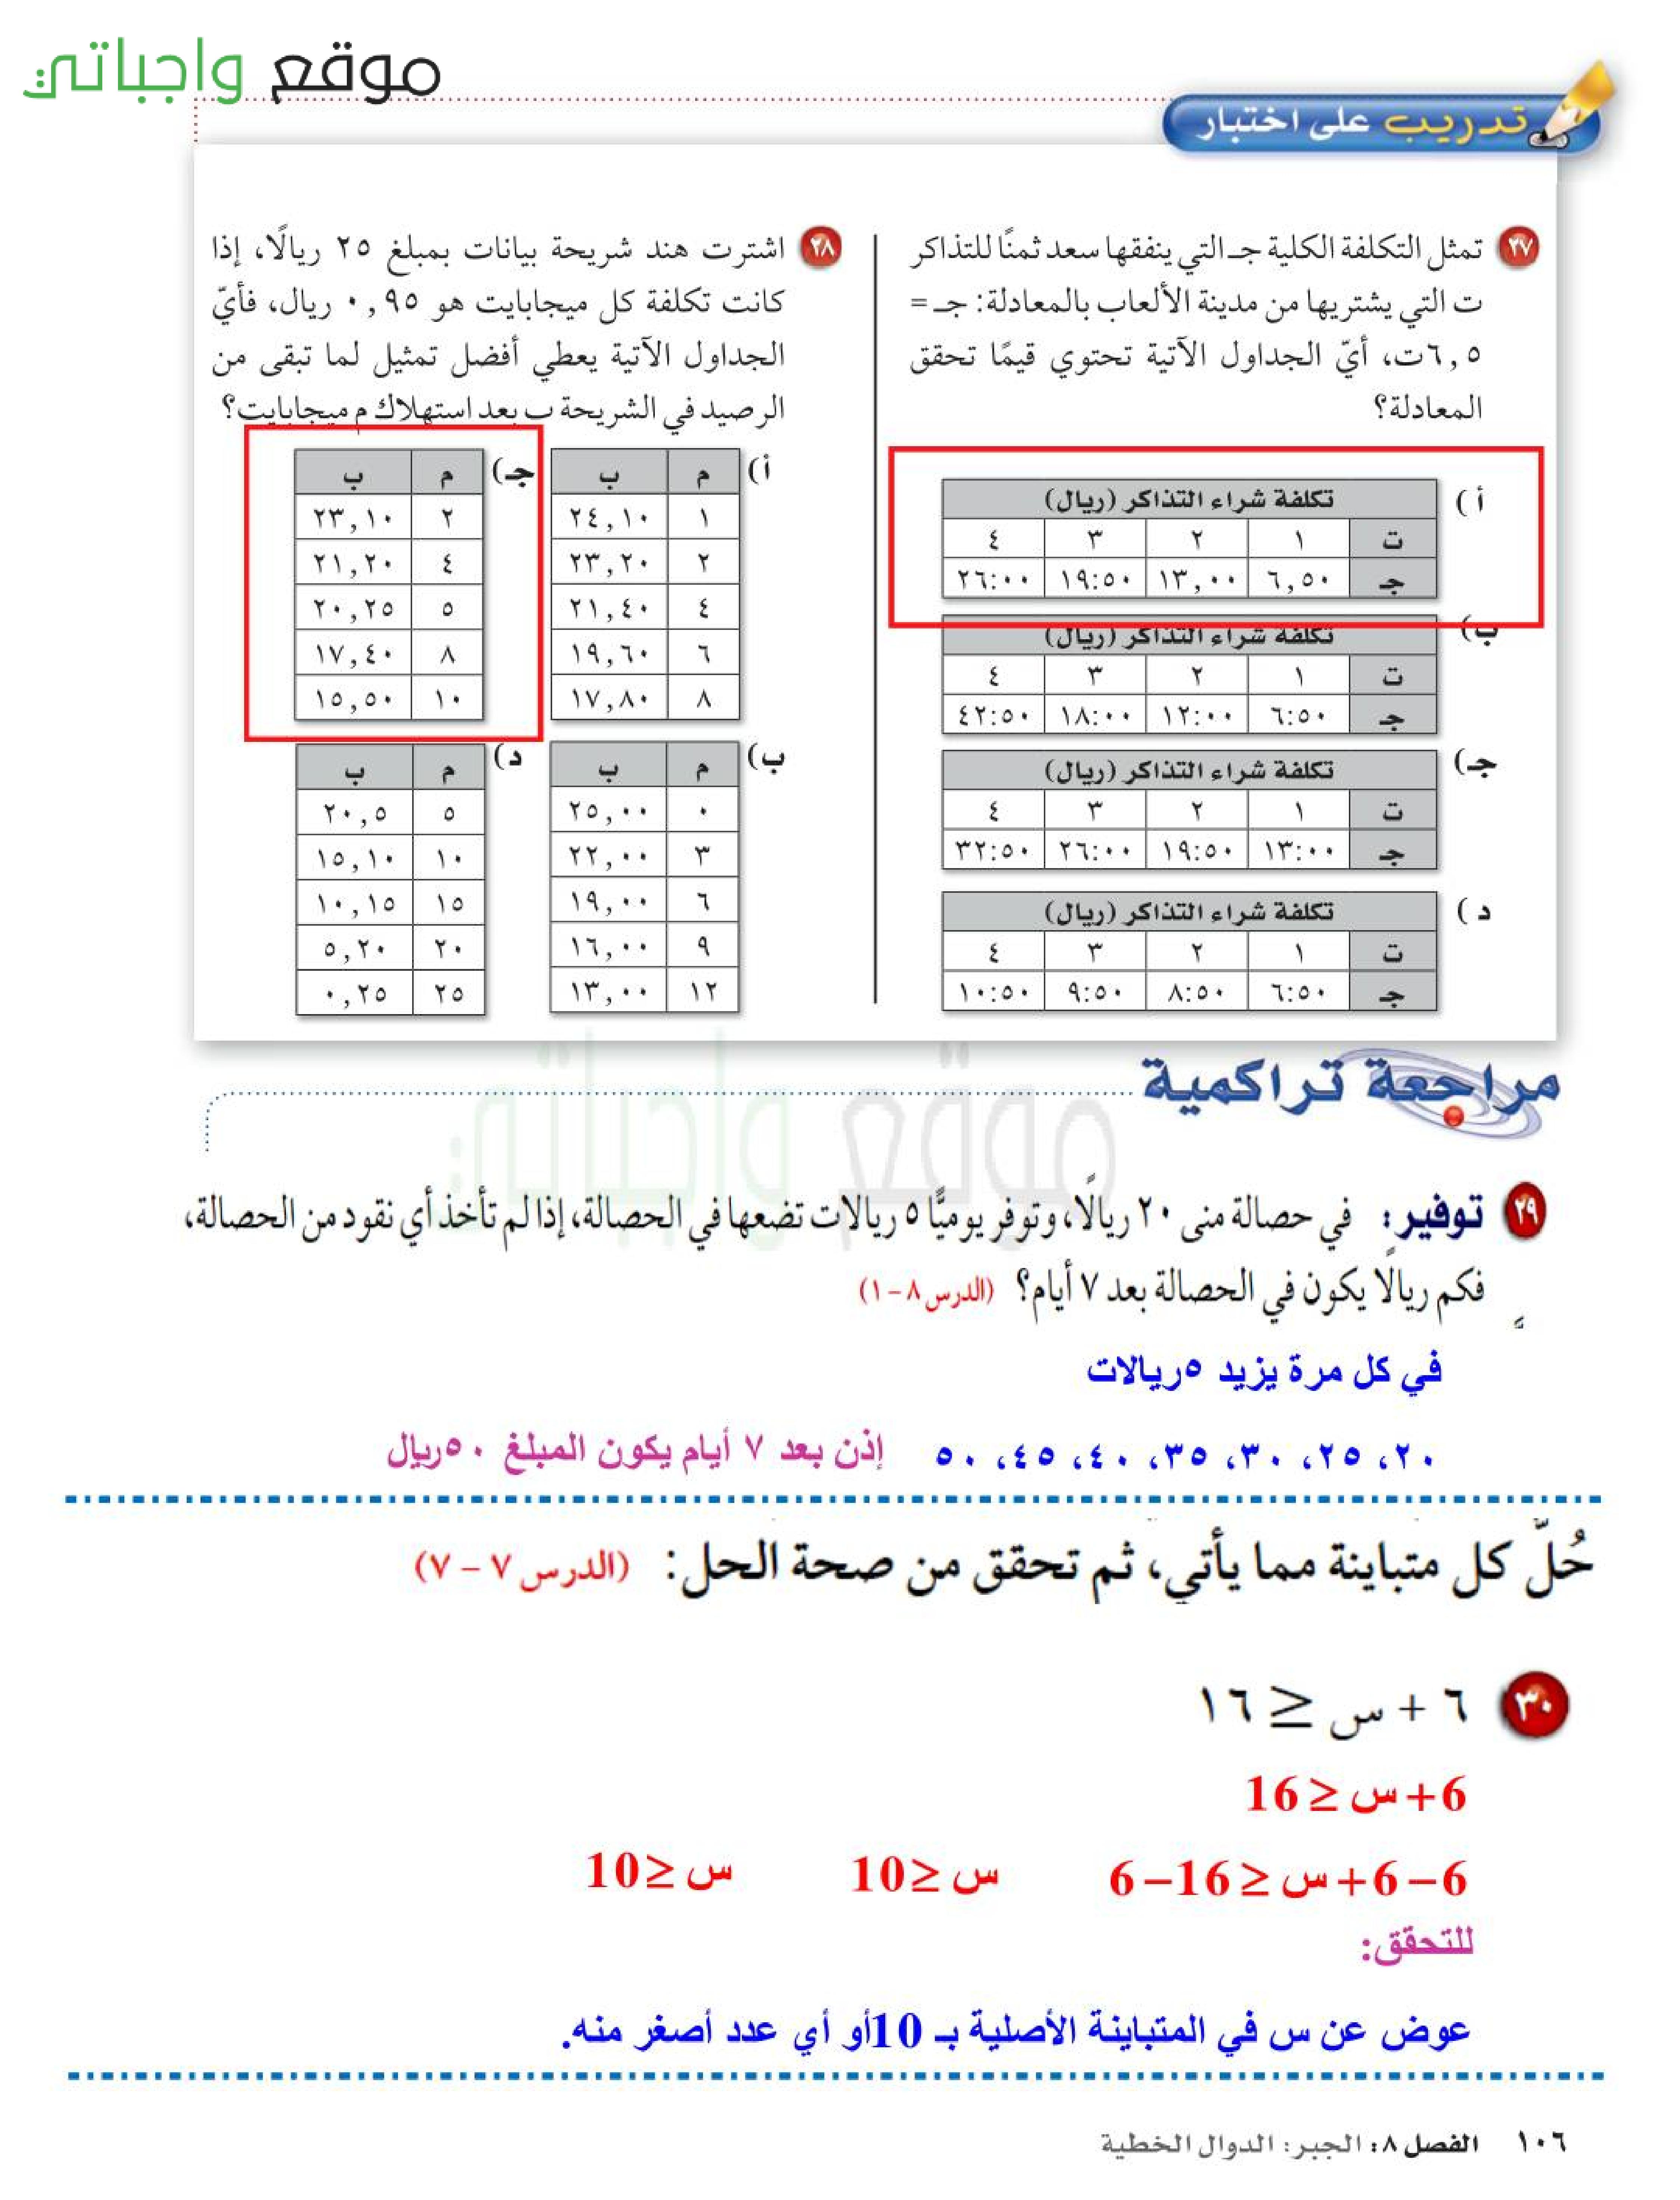 موقع واجباتي
تدريب على اختبار
٢٧ تمثل التكلفة الكلية جـ التي ينفقها سعد ثمنًا للتذاكر
ت التي يشتريها من مدينة الألعاب بالمعادلة: جـ =
٦,٥ت، أيّ الجداول الآتية تحتوي قيمًا تحقق
المعادلة؟
أ )
تكلفة شراء التذاكر (ريال)
ت ١ ٢ ٣ ٤
جـ ٦,٥٠ ١٣,٠٠ ١٩:٥٠ ٢٦:٠٠
ب)
تكلفة شراء التذاكر (ريال)
ت ١ ٢ ٣ ٤
جـ ٦:٥٠ ١٢:٠٠ ١٨:٠٠ ٤٢:٥٠
جـ)
تكلفة شراء التذاكر (ريال)
ت ١ ٢ ٣ ٤
جـ ١٣:٠٠ ١٩:٥٠ ٢٦:٠٠ ٣٢:٥٠
د )
تكلفة شراء التذاكر (ريال)
ت ١ ٢ ٣ ٤
جـ ٦:٥٠ ٨:٥٠ ٩:٥٠ ١٠:٥٠
٢٨ اشترت هند شريحة بيانات بمبلغ ٢٥ ريالًا، إذا
كانت تكلفة كل ميجابايت هو ٠,٩٥ ريال، فأيّ
الجداول الآتية يعطي أفضل تمثيل لما تبقى من
الرصيد في الشريحة ب بعد استهلاك م ميجابايت؟
أ)
م ب
١ ٢٤,١٠
٢ ٢٣,٢٠
٤ ٢١,٤٠
٦ ١٩,٦٠
٨ ١٧,٨٠
جـ)
م ب
٢ ٢٣,١٠
٤ ٢١,٢٠
٥ ٢٠,٢٥
٨ ١٧,٤٠
١٠ ١٥,٥٠
ب)
م ب
٠ ٢٥,٠٠
٣ ٢٢,٠٠
٦ ١٩,٠٠
٩ ١٦,٠٠
١٢ ١٣,٠٠
د)
م ب
٥ ٢٠,٥
١٠ ١٥,١٠
١٥ ١٠,١٥
٢٠ ٥,٢٠
٢٥ ٠,٢٥
مراجعة تراكمية
موقع واجباتي
٢٩ توفير: في حصالة منى ٢٠ ريالًا، وتوفر يوميًّا ٥ ريالات تضعها في الحصالة، إذا لم تأخذ أي نقود من الحصالة،
فكم ريالًا يكون في الحصالة بعد ٧ أيام؟ (الدرس ٨-١)
في كل مرة يزيد ٥ريالات
٢٠، ٢٥، ٣٠، ٣٥، ٤٠، ٤٥، ٥٠ إذن بعد ٧ أيام يكون المبلغ ٥٠ريال
حُلّ كل متباينة مما يأتي، ثم تحقق من صحة الحل: (الدرس ٧ - ٧)
٣٠ ٦ + س ≤ ١٦
6+ س ≤ 16
6 – 6 + س ≤ 16 – 6 س ≤ 10 س ≤ 10
للتحقق:
عوض عن س في المتباينة الأصلية بـ 10أو أي عدد أصغر منه.
١٠٦ الفصل ٨: الجبر: الدوال الخطية